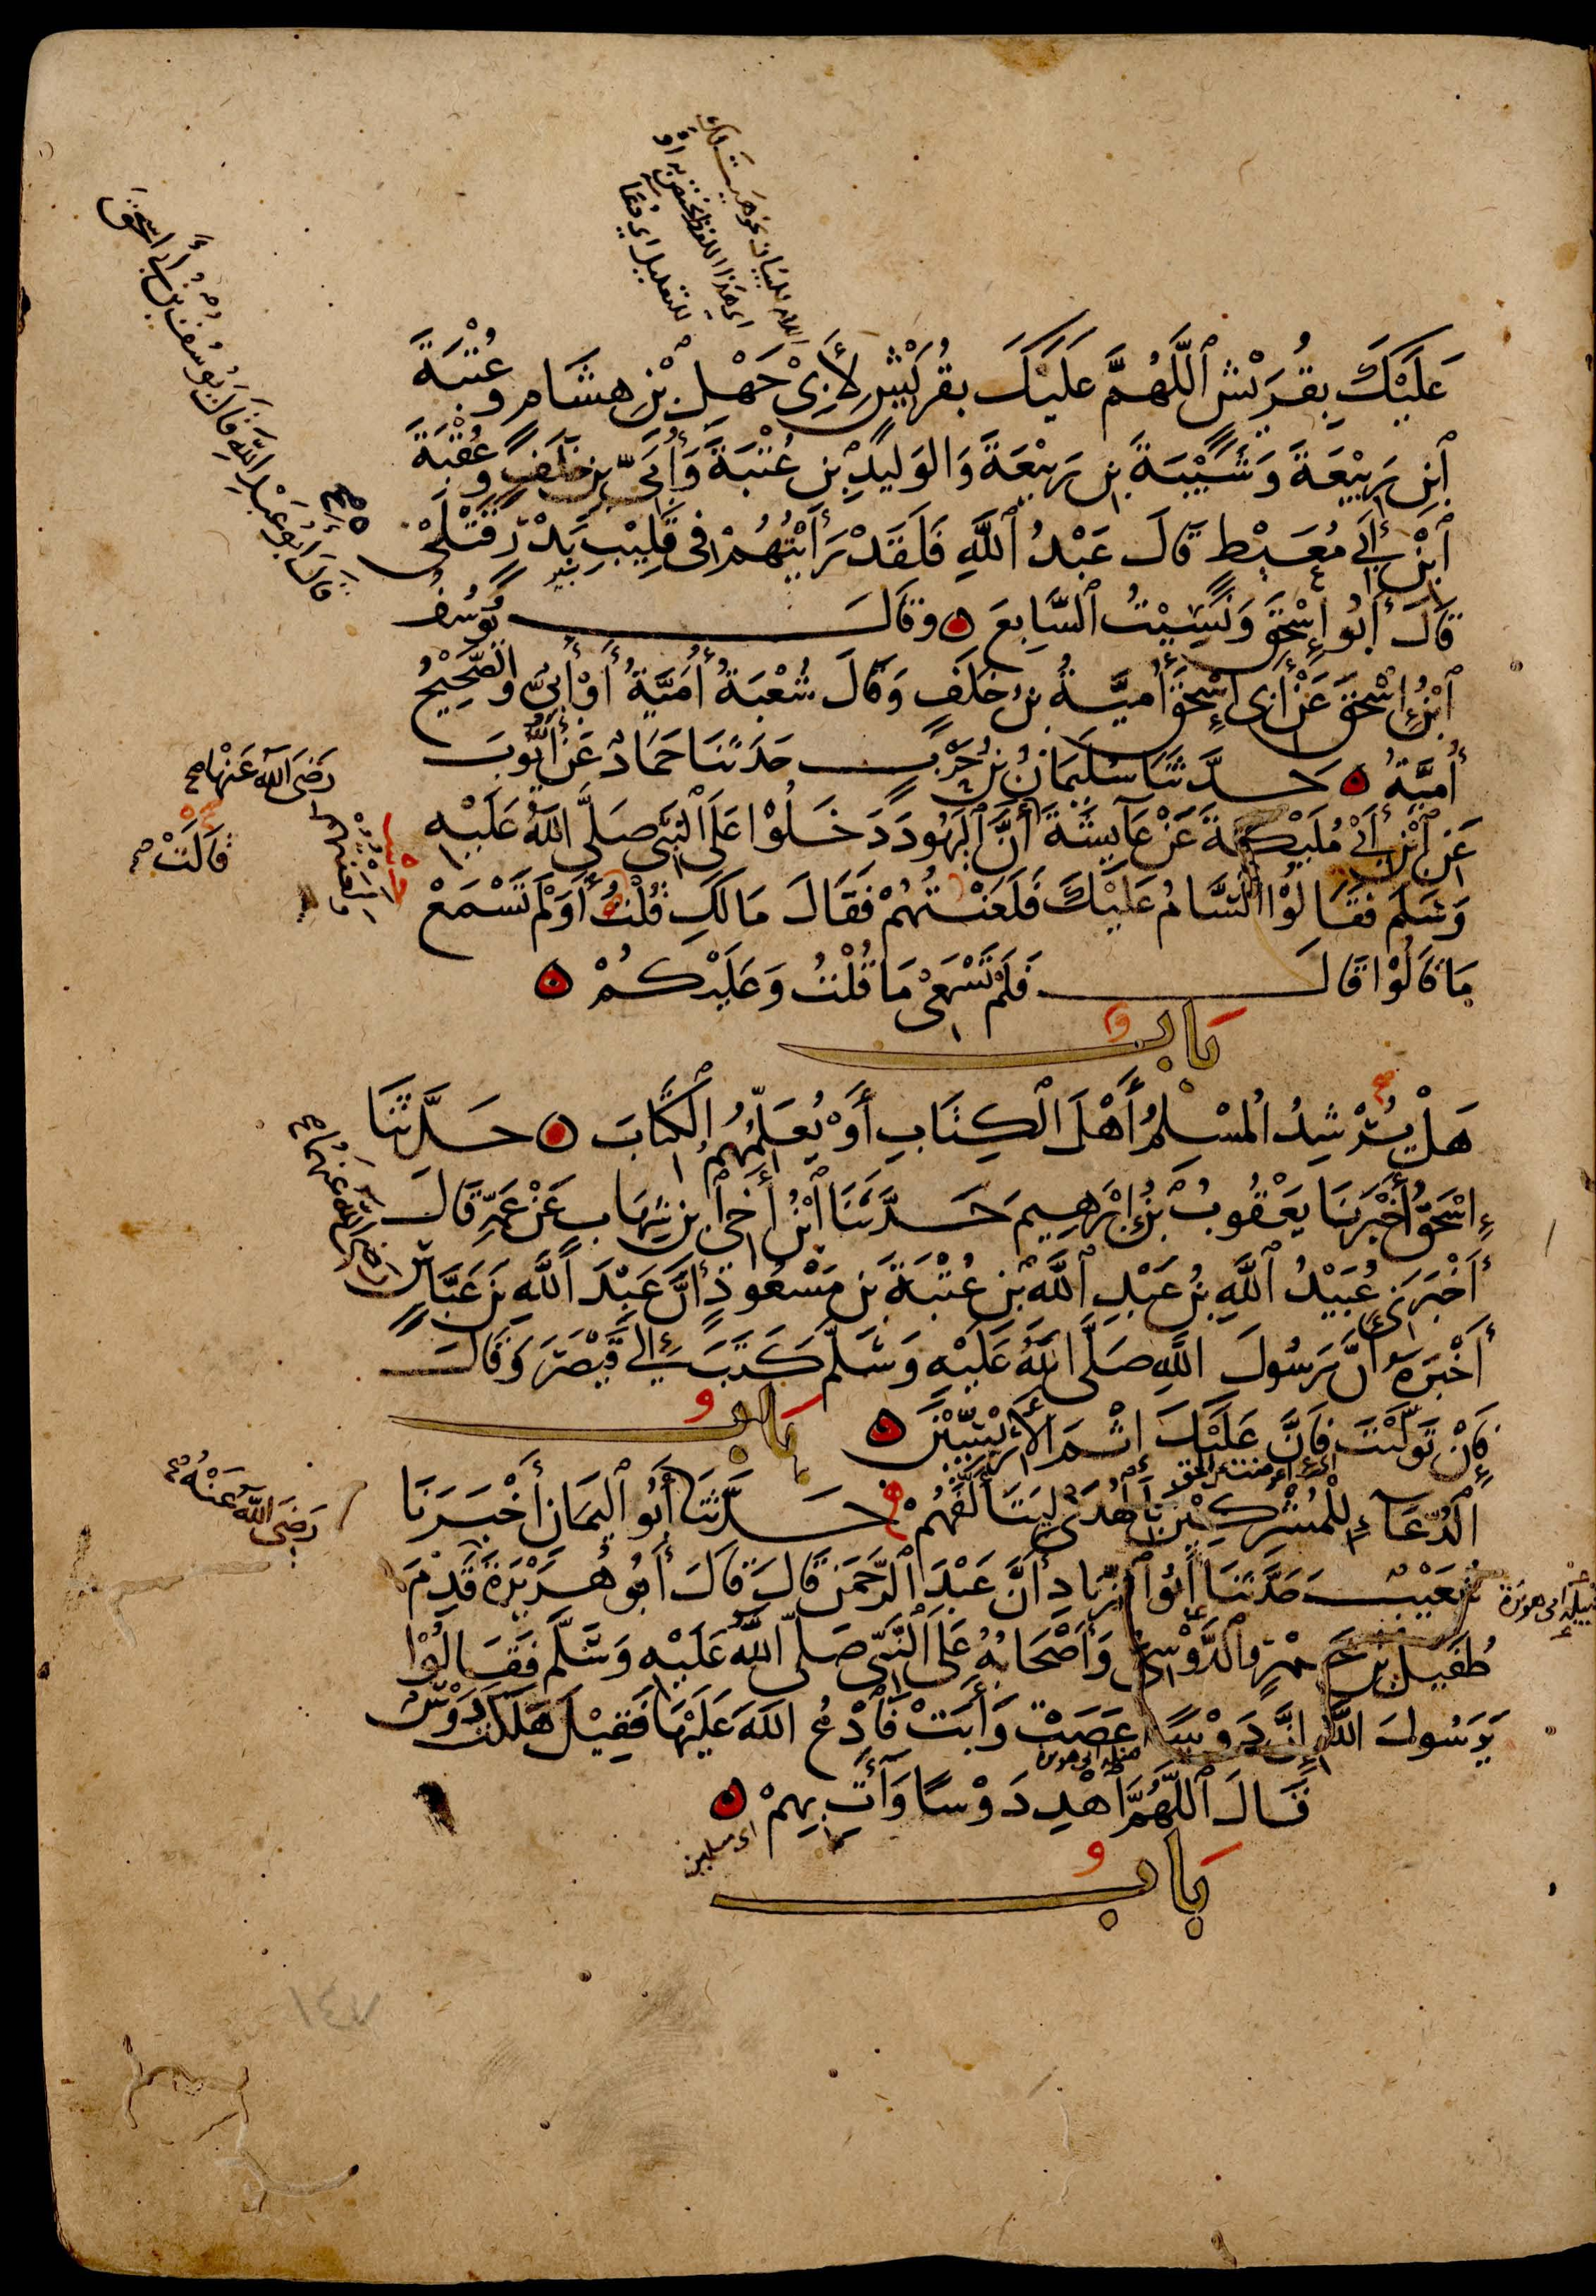 عَلَيْكَ بِقُرَيْشٍ ٱللَّهُمَّ عَلَيْكَ بِقُرَيْشٍ لِأَبِي جَهْلِ بْنِ هِشَامٍ وَعُتْبَةَ
ٱبْنِ رَبِيْعَةَ وَشَيْبَةَ بْنِ رَبِيْعَةَ وَالوَلِيدِ بْنِ عُتْبَةَ وَأُبَيِّ بْنِ خَلَفٍ وَعُقْبَةَ
ٱبْنِ أَبِي مُعَيْطٍ قَالَ عَبْدُ ٱللَّهِ فَلَقَدْ رَأَيْتُهُمْ فِي قَلِيْبِ بَدْرٍ قَتْلَى
قَالَ أَبُو إِسْحَقَ وَنَسِيْتُ ٱلسَّابِعَ ۝ وَقَالَ يُوسُفُ
ٱبْنُ إِسْحَقَ عَنْ أَبِي إِسْحَقَ أُمَيَّةُ بْنُ خَلَفٍ وَقَالَ شُعْبَةُ أُمَيَّةُ أَوْ أُبَيٌّ وَالصَّحِيْحُ
أُمَيَّةُ ۝ حَدَّثَنَا سُلَيْمَانُ بْنُ حَرْبٍ حَدَّثَنَا حَمَّادٌ عَنْ أَيُّوبَ
عَنِ ٱبْنِ أَبِي مُلَيْكَةَ عَنْ عَائِشَةَ أَنَّ ٱلْيَهُودَ دَخَلُوْا عَلَى ٱلنَّبِيِّ صَلَّى اللَّهُ عَلَيْهِ
وَسَلَّمَ فَقَالُوْا ٱلسَّامُ عَلَيْكَ فَلَعَنْتُهُمْ فَقَالَ مَا لَكِ قُلْتُ أَوَلَمْ تَسْمَعْ
مَا قَالُوْا قَالَ فَلَمْ تَسْمَعِيْ مَا قُلْتُ وَعَلَيْكُمْ ۝
بَابٌ
هَلْ يُرْشِدُ ٱلمُسْلِمُ أَهْلَ ٱلْكِتَابِ أَوْ يُعَلِّمُهُمُ ٱلْكِتَابَ ۝ حَدَّثَنَا
إِسْحَقُ أَخْبَرَنَا يَعْقُوبُ بْنُ إِبْرَهِيمَ حَدَّثَنَا ٱبْنُ أَخِي ٱبْنِ شِهَابٍ عَنْ عَمِّهِ قَالَ
أَخْبَرَنِي عُبَيْدُ ٱللَّهِ بْنُ عَبْدِ ٱللَّهِ بْنِ عُتْبَةَ بْنِ مَسْعُودٍ أَنَّ عَبْدَ ٱللَّهِ بْنَ عَبَّاسٍ
أَخْبَرَهُ أَنَّ رَسُولَ اللَّهِ صَلَّى اللَّهُ عَلَيْهِ وَسَلَّمَ كَتَبَ إِلَى قَيْصَرَ وَقَالَ
فَإِنْ تَوَلَّيْتَ فَإِنَّ عَلَيْكَ إِثْمَ ٱلْأَرِيْسِيِّيْنَ ۝ بَابُ
ٱلدُّعَاءِ لِلْمُشْرِكِيْنَ بِٱلْهُدَى لِيَتَأَلَّفَهُمْ ۝ حَدَّثَنَا أَبُو ٱلْيَمَانِ أَخْبَرَنَا
شُعَيْبٌ حَدَّثَنَا أَبُو ٱلزِّنَادِ أَنَّ عَبْدَ ٱلرَّحْمَنِ قَالَ قَالَ أَبُو هُرَيْرَةَ قَدِمَ
طُفَيْلُ بْنُ عَمْرٍو ٱلدَّوْسِيُّ وَأَصْحَابُهُ عَلَى ٱلنَّبِيِّ صَلَّى ٱللَّهُ عَلَيْهِ وَسَلَّمَ فَقَالُوْا
يَرَسُولَ اللَّهِ إِنَّ دَوْسًا عَصَتْ وَأَبَتْ فَٱدْعُ اللَّهَ عَلَيْهَا فَقِيْلَ هَلَكَتْ دَوْسٌ
قَالَ ٱللَّهُمَّ ٱهْدِ دَوْسًا وَأْتِ بِهِمْ ۝
بَابُ
قَالَ أَبُو عَبْدِ اللَّهِ قَالَ يُوسُفُ بْنُ أَبِي إِسْحَقَ
رَضِيَ اللَّهُ عَنْهَا
قَالَتْ
رَضِيَ اللَّهُ عَنْهُمَا
رَضِيَ اللَّهُ عَنْهُ
قبيلة ابي هريرة
اى مسلمين
١٤٧